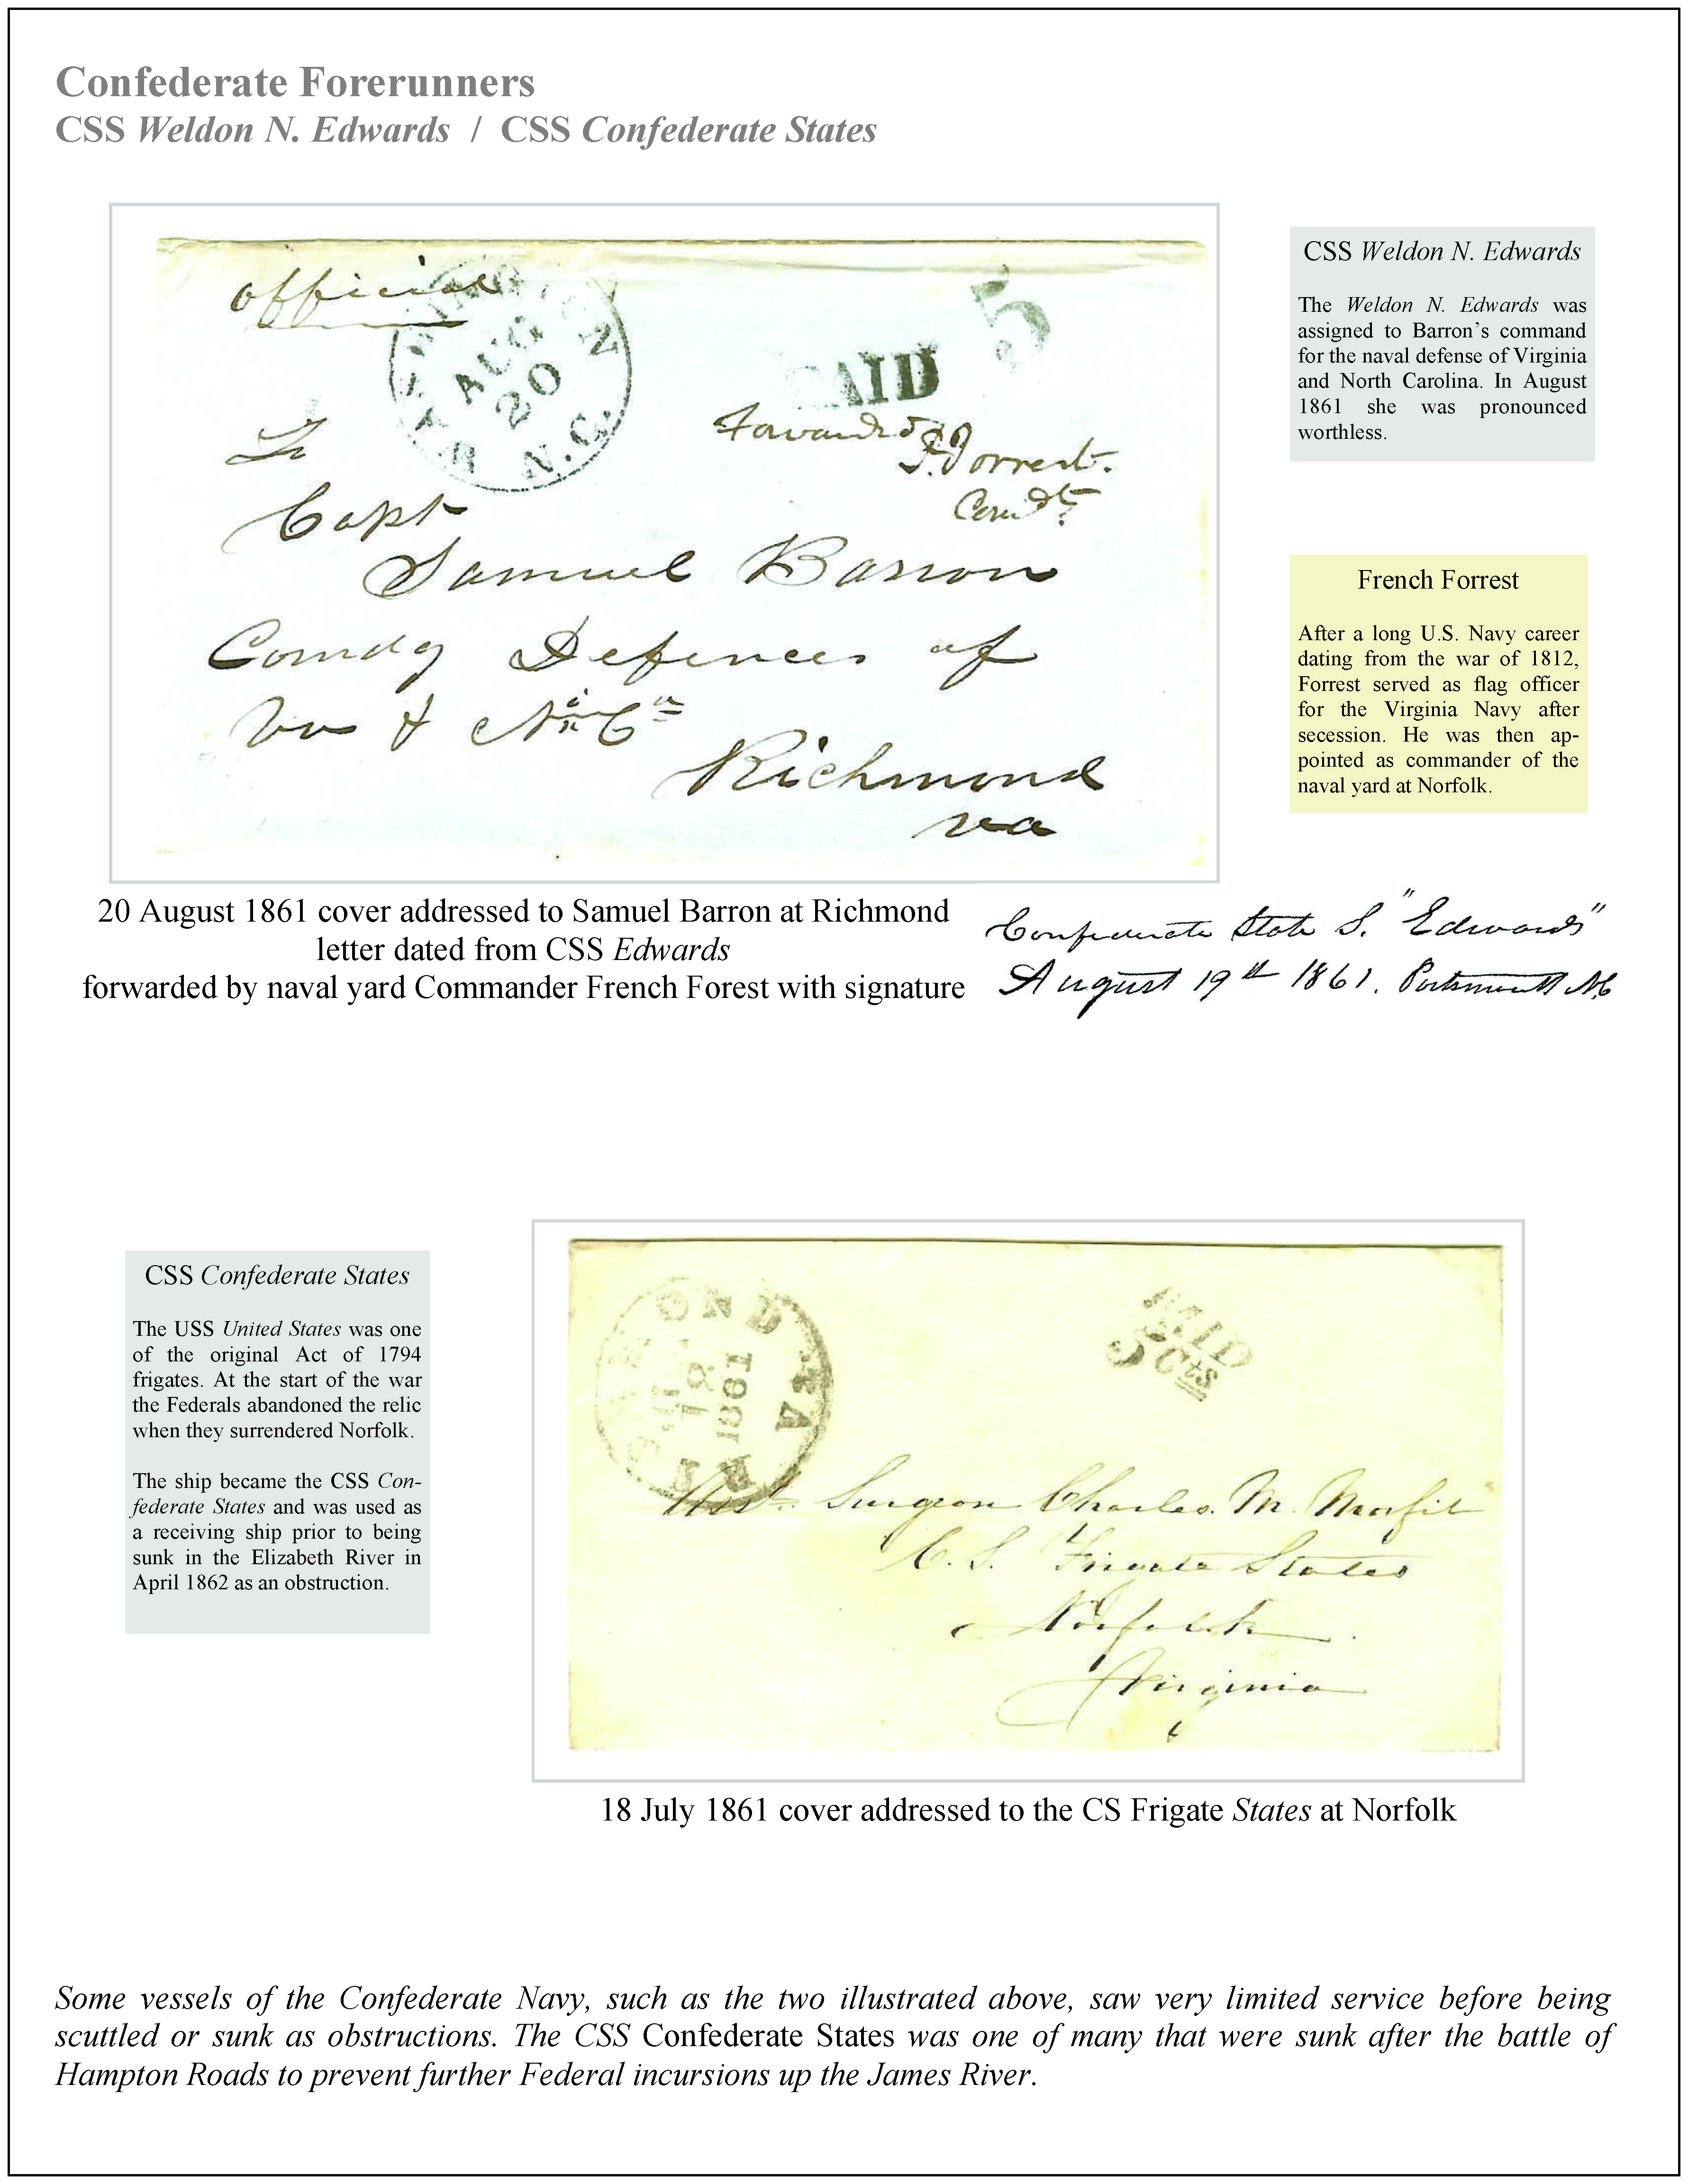 Confederate Forerunners
CSS Weldon N. Edwards / CSS Confederate States
official
AUG
20
N.C.
PAID
5
Forwarded
F. Forrest.
Comdt.
To
Capt
Samuel Barron
Comdg Defences of
Va & No Ca
Richmond
Va
CSS Weldon N. Edwards
The Weldon N. Edwards was
assigned to Barron's command
for the naval defense of Virginia
and North Carolina. In August
1861 she was pronounced
worthless.
French Forrest
After a long U.S. Navy career
dating from the war of 1812,
Forrest served as flag officer
for the Virginia Navy after
secession. He was then ap-
pointed as commander of the
naval yard at Norfolk.
20 August 1861 cover addressed to Samuel Barron at Richmond
letter dated from CSS Edwards
forwarded by naval yard Commander French Forest with signature
Confederate State S. "Edwards"
August 19th 1861. Portsmouth N.C
CSS Confederate States
The USS United States was one
of the original Act of 1794
frigates. At the start of the war
the Federals abandoned the relic
when they surrendered Norfolk.
The ship became the CSS Con-
federate States and was used as
a receiving ship prior to being
sunk in the Elizabeth River in
April 1862 as an obstruction.
RICHMOND VA
18
1861
PAID
5 Cts
Asst. Surgeon Charles. M. Morfit
C. S. Frigate States
Norfolk
Virginia
18 July 1861 cover addressed to the CS Frigate States at Norfolk
Some vessels of the Confederate Navy, such as the two illustrated above, saw very limited service before being
scuttled or sunk as obstructions. The CSS Confederate States was one of many that were sunk after the battle of
Hampton Roads to prevent further Federal incursions up the James River.